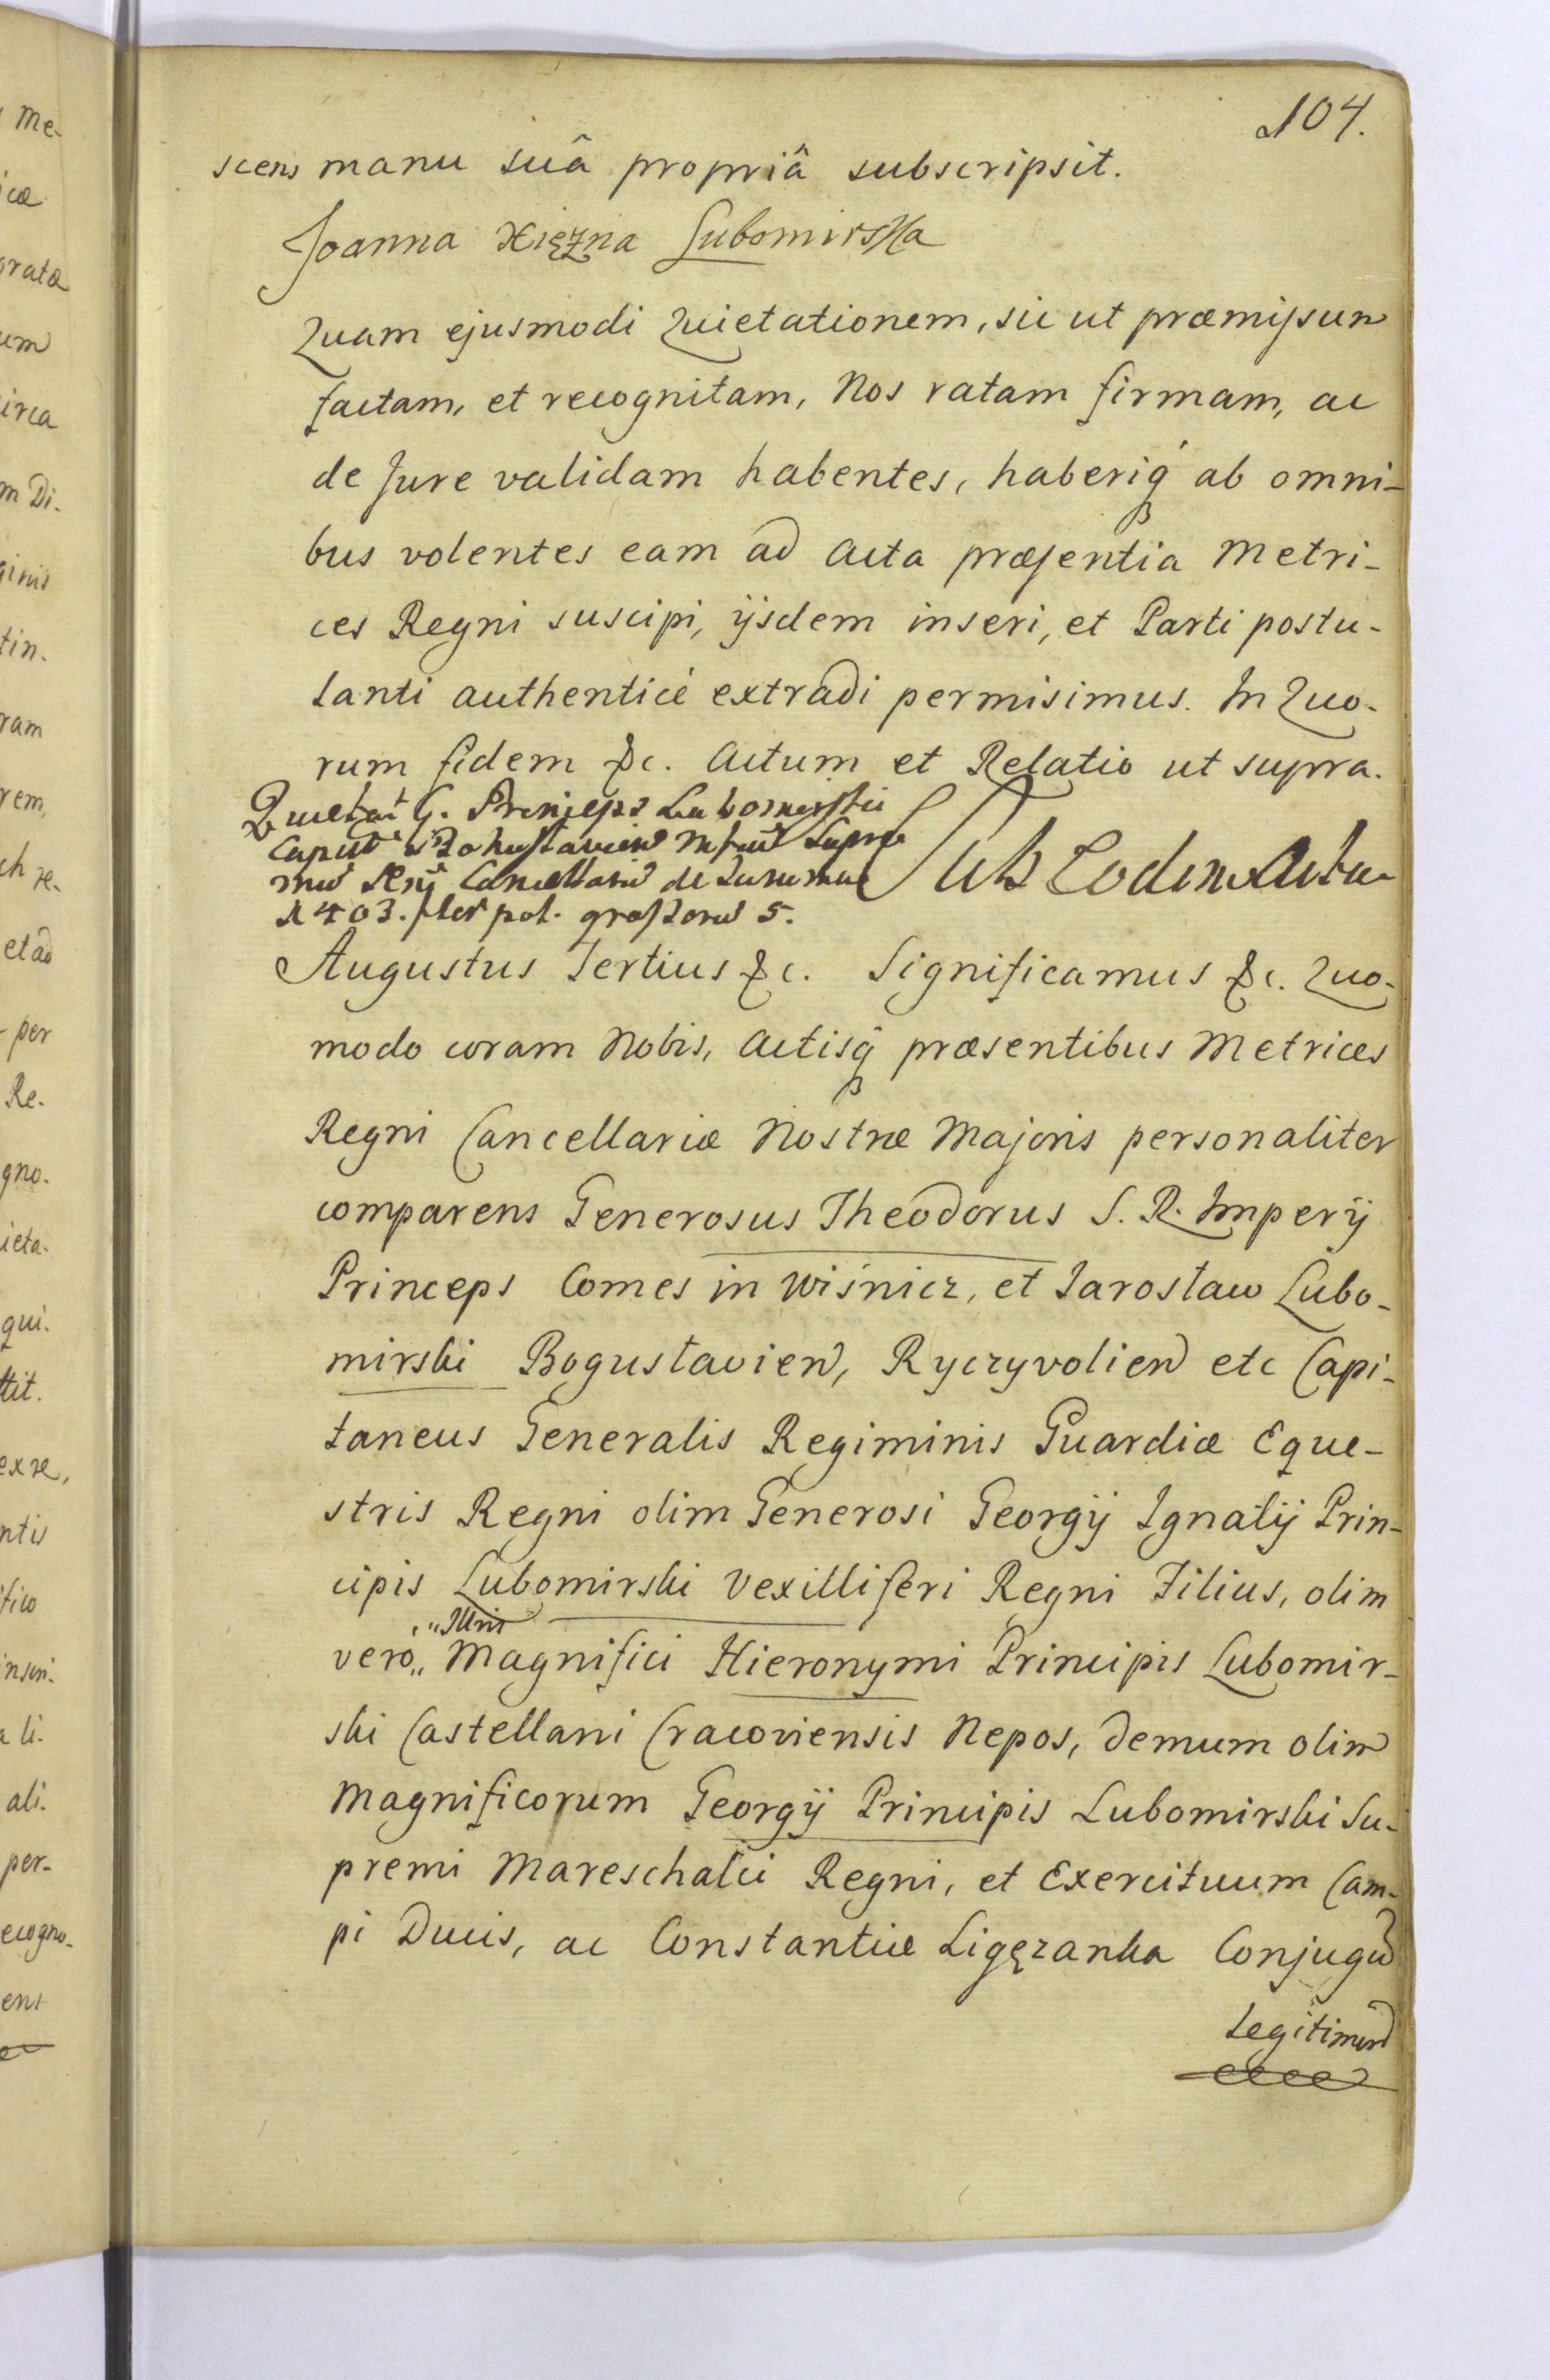 104.
scens manu suâ propriâ subscripsit.
Joanna Xiężna Lubomirska
Quam ejusmodi Quietationem, sic ut præmissum
factam, et recognitam, Nos ratam firmam, ac
de Jure validam habentes, haberiq́ ab omni-
bus volentes eam ad Acta præsentia Metri-
ces Regni suscipi, ijsdem inseri, et Parti postu-
lanti authenticè extradi permisimus. In Quo-
rum fidem &c. Actum et Relatio ut supra.
Quietat G. Princeps Lubomirski
Supre
mū Cancellariū de Summa
1403. pol. 5.
Sub Eodem Actu
Augustus Tertius &c. Significamus &c. Quo-
modo coram Nobis, Actisq́ præsentibus Metrices
Regni Cancellariæ Nostræ Majoris personaliter
comparens Generosus Theodorus S. R. Imperij
Princeps Comes in Wiśnicz, et Jarosław Lubo-
mirski Bogusłavien, Ryczyvolien etc Capi-
taneus Generalis Regiminis Guardiæ Eque-
stris Regni olim Generosi Georgij Ignatij Prin-
cipis Lubomirski Vexilliferi Regni Filius, olim
„Illris
vero„ Magnifici Hieronymi Principis Lubomir-
ski Castellani Cracoviensis Nepos, demum olim
Magnificorum Georgij Principis Lubomirski Su-
premi Mareschalci Regni, et Exercituum Cam-
pi Ducis, ac Constantiæ Ligęzanka Conjugū
Legitimorū